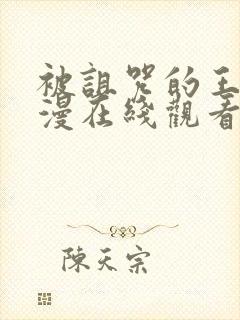 被詛咒的王
漫在綫觀看
陳天宗